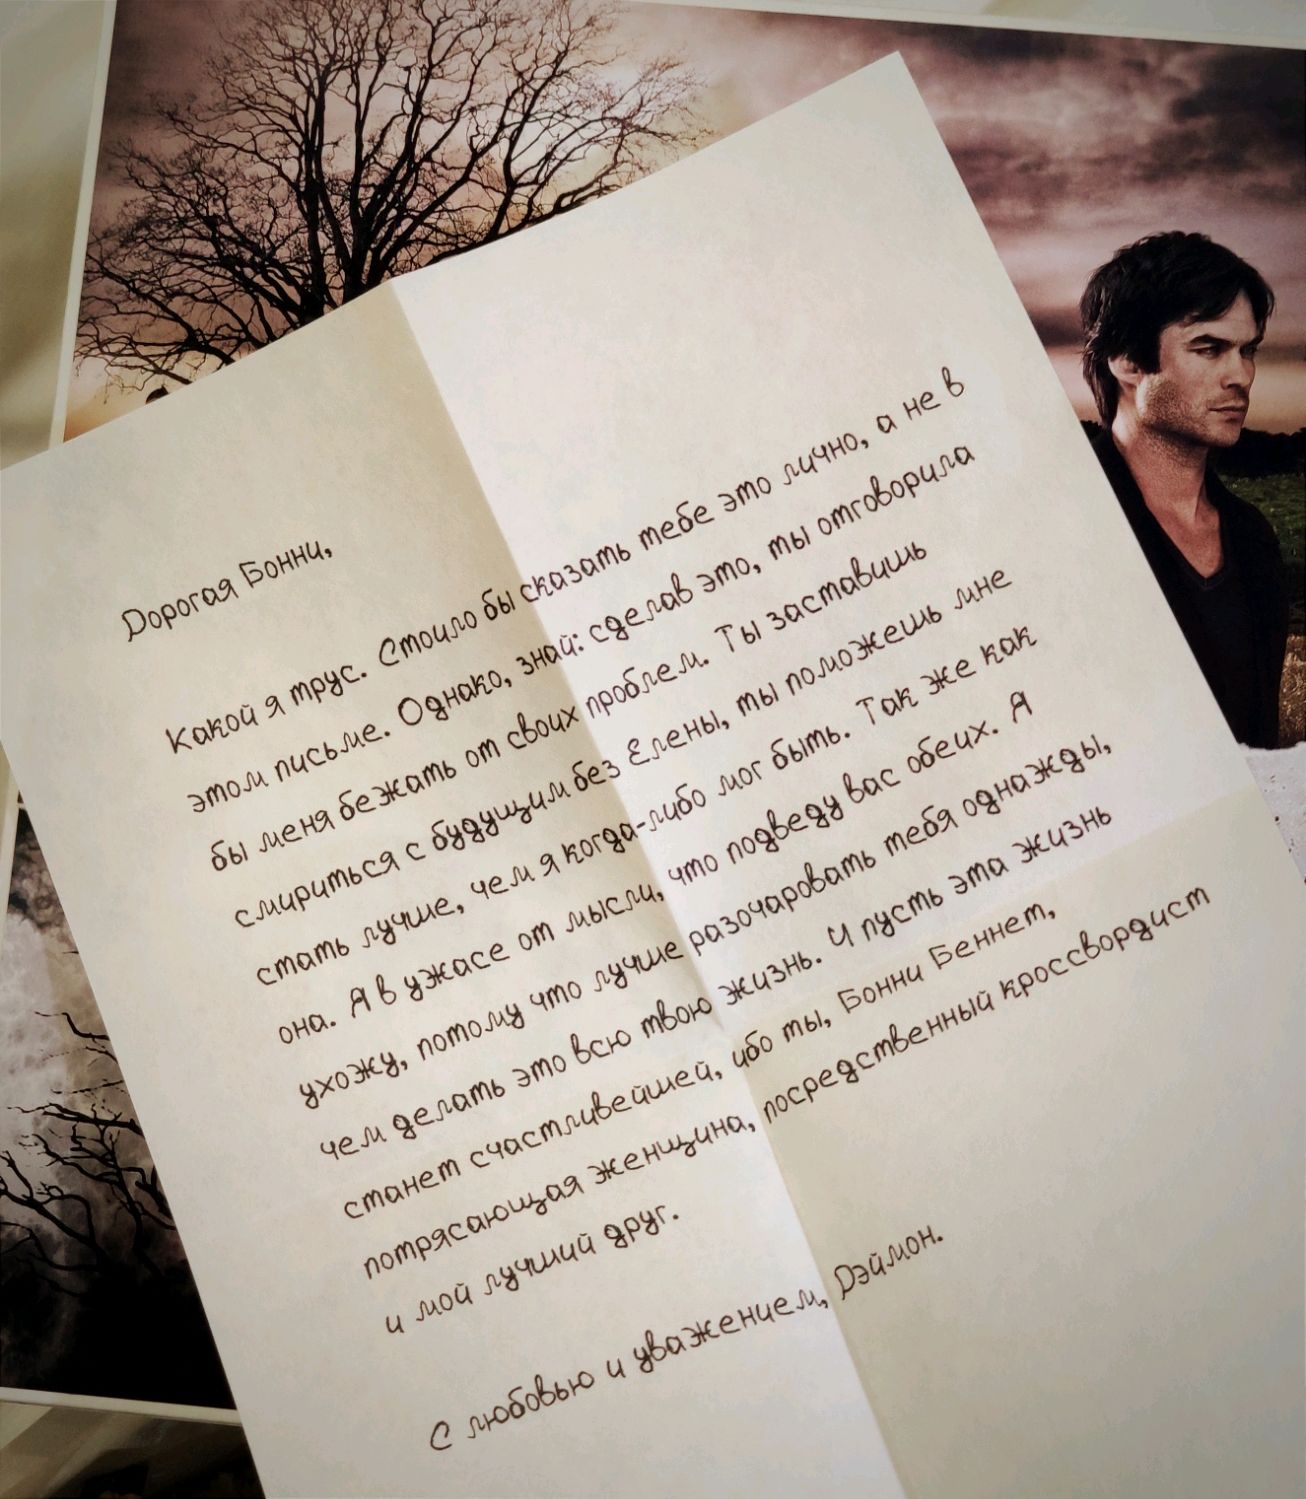 Дорогая Бонни,
Какой я трус. Стоило бы сказать тебе это лично, а не в
этом письме. Однако, знай: сделав это, ты отговорила
бы меня бежать от своих проблем. Ты заставишь
смириться с будущим без Елены, ты поможешь мне
стать лучше, чем я когда-либо мог быть. Так же как
она. Я в ужасе от мысли, что подведу вас обеих. Я
ухожу, потому что лучше разочаровать тебя однажды,
чем делать это всю твою жизнь. И пусть эта жизнь
станет счастливейшей, ибо ты, Бонни Беннет,
потрясающая женщина, посредственный кроссвордист
и мой лучший друг.
С любовью и уважением, Дэймон.